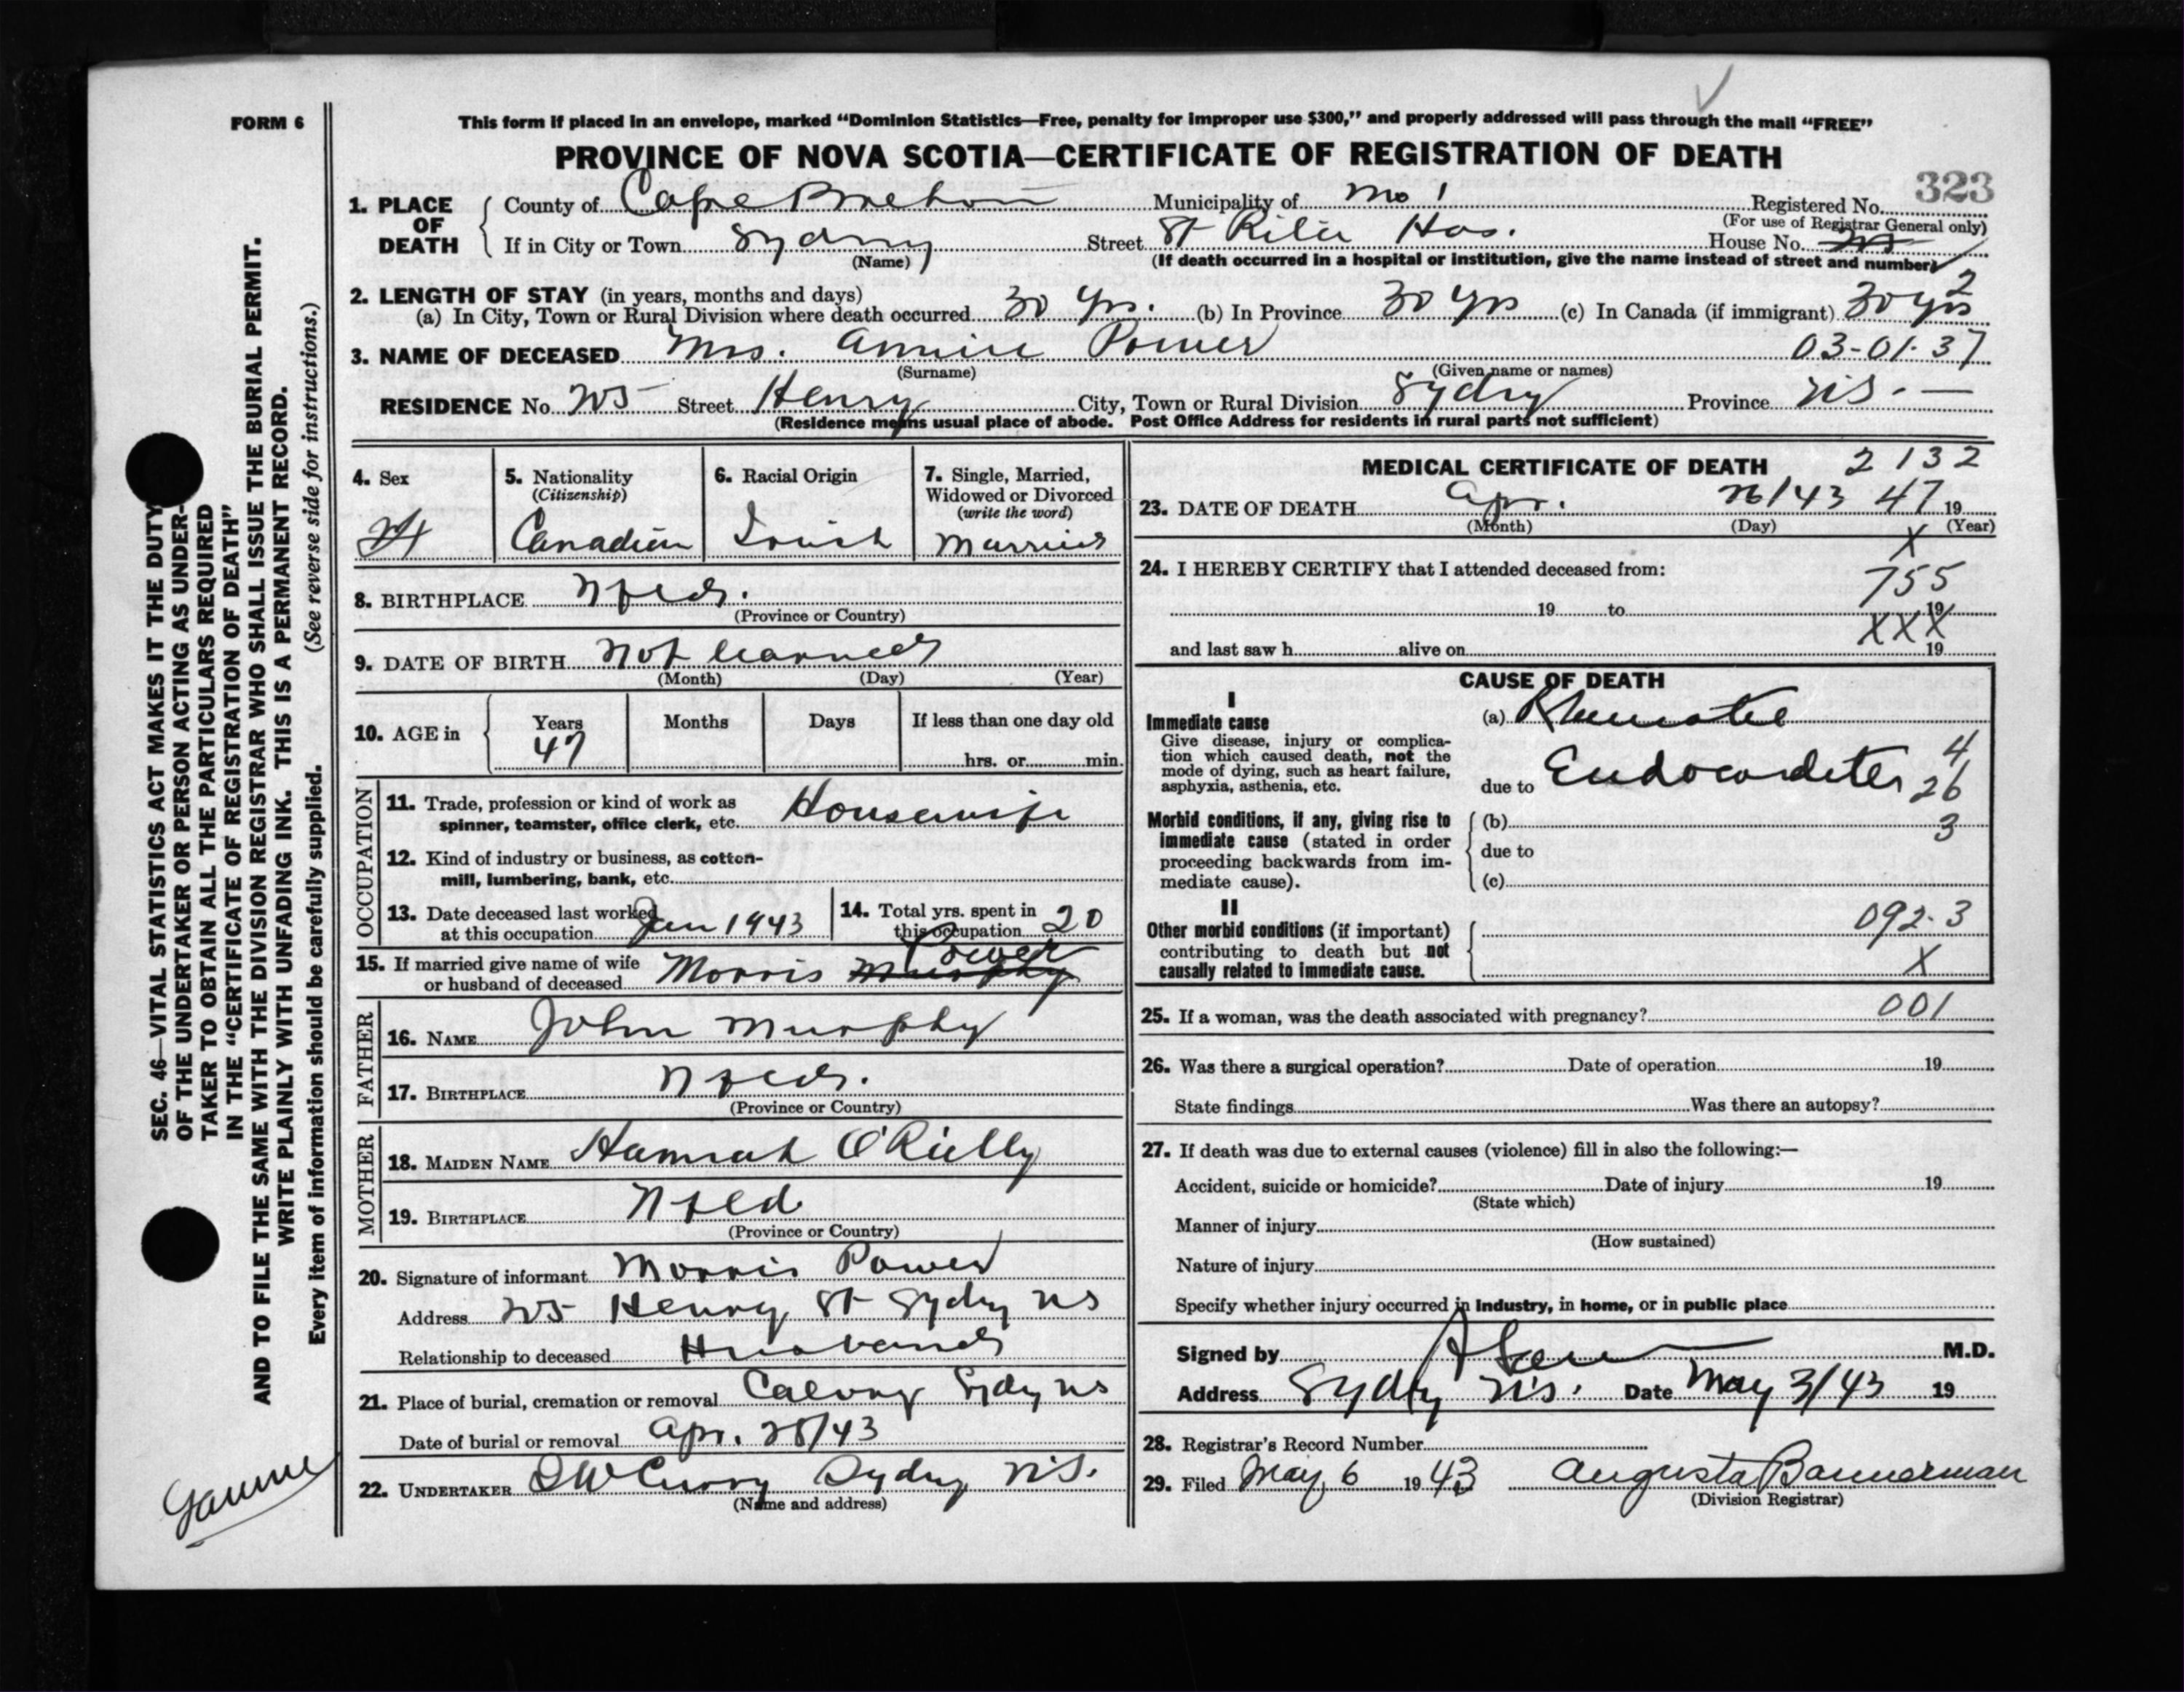 FORM 6
This form if placed in an envelope, marked "Dominion Statistics—Free, penalty for improper use $300," and properly addressed will pass through the mail "FREE"
PROVINCE OF NOVA SCOTIA—CERTIFICATE OF REGISTRATION OF DEATH
323
1. PLACE OF DEATH
County of Cape Breton Municipality of No 1 Registered No.
(For use of Registrar General only)
If in City or Town Sydney Street St Rita Hos. House No.
(Name) (If death occurred in a hospital or institution, give the name instead of street and number)
2
2. LENGTH OF STAY (in years, months and days)
(a) In City, Town or Rural Division where death occurred 30 yrs. (b) In Province 30 yrs (c) In Canada (if immigrant) 30 yrs
3. NAME OF DECEASED Mrs. Annie Power 03-01-37
(Surname) (Given name or names)
RESIDENCE No. Street Henry City, Town or Rural Division Sydney Province N.S. —
(Residence means usual place of abode. Post Office Address for residents in rural parts not sufficient)
4. Sex
5. Nationality
(Citizenship)
Canadian
6. Racial Origin
Irish
7. Single, Married,
Widowed or Divorced
(write the word)
Married
8. BIRTHPLACE Nfld.
(Province or Country)
9. DATE OF BIRTH not learned
(Month) (Day) (Year)
10. AGE in Years Months Days If less than one day old
47 hrs. or min.
OCCUPATION
11. Trade, profession or kind of work as
spinner, teamster, office clerk, etc. Housewife
12. Kind of industry or business, as cotton-
mill, lumbering, bank, etc.
13. Date deceased last worked
at this occupation Jan 1943
14. Total yrs. spent in
this occupation 20
15. If married give name of wife
or husband of deceased Morris Murphy Power
FATHER
16. NAME John Murphy
17. BIRTHPLACE Nfld.
(Province or Country)
MOTHER
18. MAIDEN NAME Hannah O'Rielly
19. BIRTHPLACE Nfld
(Province or Country)
20. Signature of informant Morris Power
Address Henry St Sydney NS
Relationship to deceased Husband
21. Place of burial, cremation or removal Calvary Sydney NS
Date of burial or removal Apr. 28/43
22. UNDERTAKER Curry Sydney N.S.
(Name and address)
MEDICAL CERTIFICATE OF DEATH 2132
23. DATE OF DEATH Apr. 26/43 47 19
(Month) (Day) (Year)
X
24. I HEREBY CERTIFY that I attended deceased from:
755
19 to 19
XXX
and last saw h alive on 19
CAUSE OF DEATH
I
Immediate cause
Give disease, injury or complica-
tion which caused death, not the
mode of dying, such as heart failure,
asphyxia, asthenia, etc.
(a) Rheumatic
due to Endocarditis
4
26
3
Morbid conditions, if any, giving rise to
immediate cause (stated in order
proceeding backwards from im-
mediate cause).
(b)
due to
(c)
II
Other morbid conditions (if important)
contributing to death but not
causally related to immediate cause.
092-3
X
25. If a woman, was the death associated with pregnancy? 001
26. Was there a surgical operation? Date of operation 19
State findings Was there an autopsy?
27. If death was due to external causes (violence) fill in also the following:—
Accident, suicide or homicide? Date of injury 19
(State which)
Manner of injury
(How sustained)
Nature of injury
Specify whether injury occurred in industry, in home, or in public place
Signed by M.D.
Address Sydney N.S. Date May 3/43 19
28. Registrar's Record Number
29. Filed May 6 1943 Augusta Bannerman
(Division Registrar)
SEC. 46—VITAL STATISTICS ACT MAKES IT THE DUTY
OF THE UNDERTAKER OR PERSON ACTING AS UNDER-
TAKER TO OBTAIN ALL THE PARTICULARS REQUIRED
IN THE "CERTIFICATE OF REGISTRATION OF DEATH"
AND TO FILE THE SAME WITH THE DIVISION REGISTRAR WHO SHALL ISSUE THE BURIAL PERMIT.
WRITE PLAINLY WITH UNFADING INK. THIS IS A PERMANENT RECORD.
Every item of information should be carefully supplied. (See reverse side for instructions.)